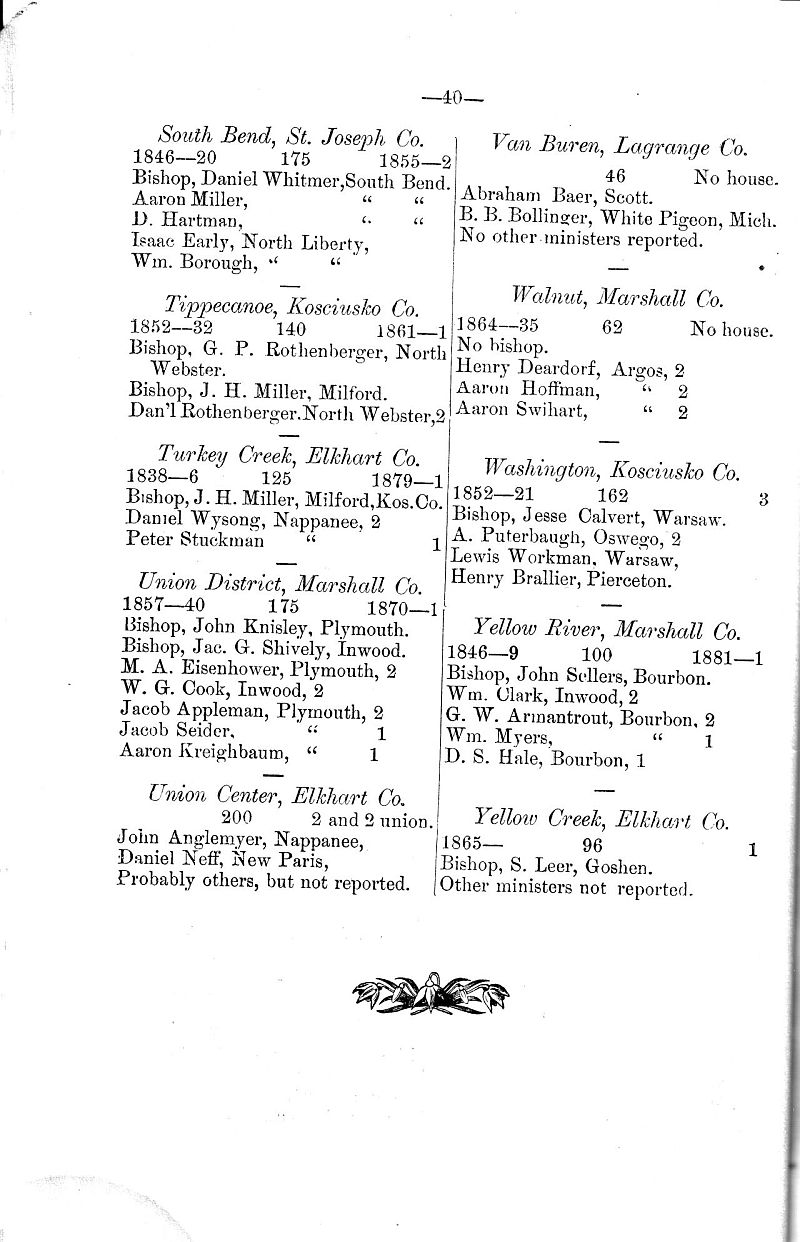 —40—
South Bend, St. Joseph Co.
1846—20 175 1855—2
Bishop, Daniel Whitmer, South Bend.
Aaron Miller, “ “
D. Hartman, “ “
Isaac Early, North Liberty,
Wm. Borough, “ “
—
Tippecanoe, Kosciusko Co.
1852—32 140 1861—1
Bishop, G. P. Rothenberger, North
Webster.
Bishop, J. H. Miller, Milford.
Dan'l Rothenberger. North Webster, 2
—
Turkey Creek, Elkhart Co.
1838—6 125 1879—1
Bishop, J. H. Miller, Milford, Kos. Co.
Daniel Wysong, Nappanee, 2
Peter Stuckman “ 1
—
Union District, Marshall Co.
1857—40 175 1870—1
Bishop, John Knisley, Plymouth.
Bishop, Jac. G. Shively, Inwood.
M. A. Eisenhower, Plymouth, 2
W. G. Cook, Inwood, 2
Jacob Appleman, Plymouth, 2
Jacob Seider, “ 1
Aaron Kreighbaum, “ 1
—
Union Center, Elkhart Co.
200 2 and 2 union.
John Anglemyer, Nappanee,
Daniel Neff, New Paris,
Probably others, but not reported.
Van Buren, Lagrange Co.
46 No house.
Abraham Baer, Scott.
B. B. Bollinger, White Pigeon, Mich.
No other ministers reported.
—
Walnut, Marshall Co.
1864—35 62 No house.
No bishop.
Henry Deardorf, Argos, 2
Aaron Hoffman, “ 2
Aaron Swihart, “ 2
—
Washington, Kosciusko Co.
1852—21 162 3
Bishop, Jesse Calvert, Warsaw.
A. Puterbaugh, Oswego, 2
Lewis Workman, Warsaw,
Henry Brallier, Pierceton.
—
Yellow River, Marshall Co.
1846—9 100 1881—1
Bishop, John Sellers, Bourbon.
Wm. Clark, Inwood, 2
G. W. Armantrout, Bourbon, 2
Wm. Myers, “ 1
D. S. Hale, Bourbon, 1
—
Yellow Creek, Elkhart Co.
1865— 96 1
Bishop, S. Leer, Goshen.
Other ministers not reported.